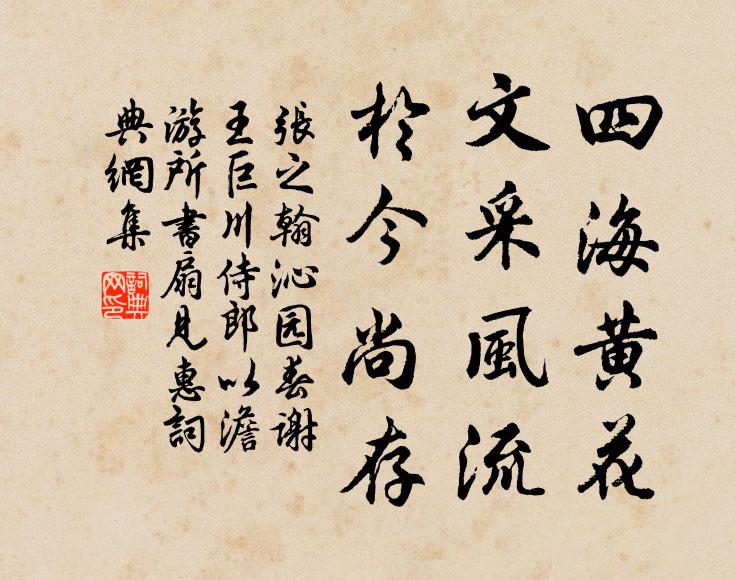 四海黄花
文采風流
於今尚存
張之翰沁园春谢
王巨川侍郎以澹
游所書扇見惠詞
典網集
詞典
网印